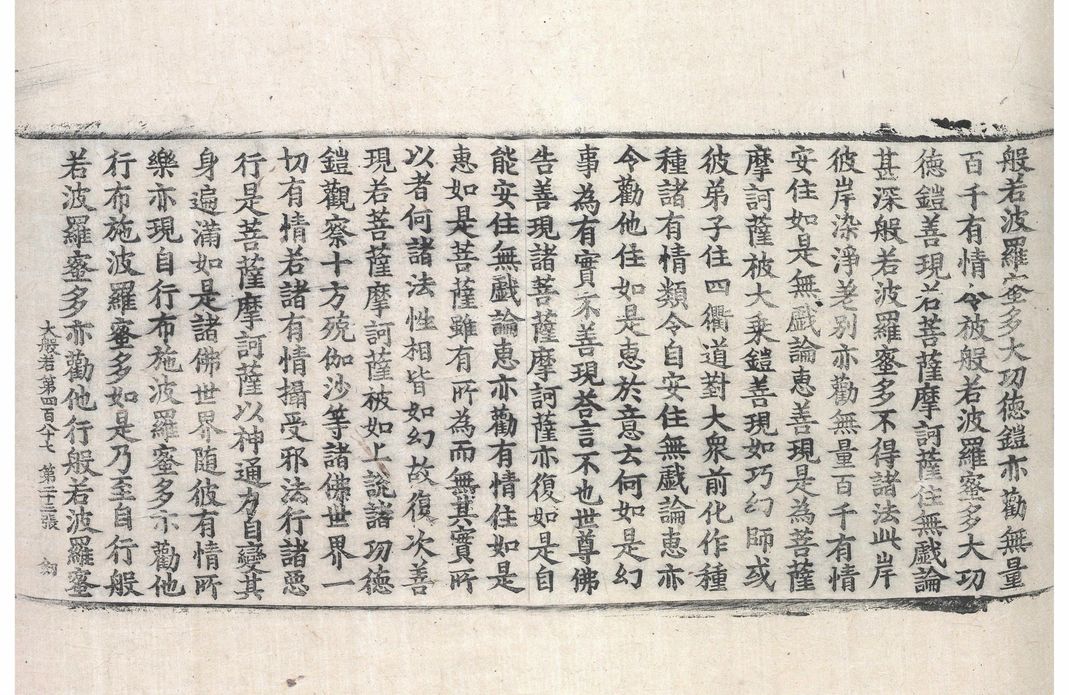 般若波羅蜜多大功德鎧亦勸無量
百千有情令被般若波羅蜜多大功
德鎧善現若菩薩摩訶薩住無戲論
甚深般若波羅蜜多不得諸法此岸
彼岸染淨差別亦勸無量百千有情
安住如是無戲論惠善現是為菩薩
摩訶薩被大乘鎧善現如巧幻師或
彼弟子住四衢道對大衆前化作種
種諸有情類令自安住無戲論惠亦
令勸他住如是惠於意云何如是幻
事為有實不善現荅言不也世尊佛
告善現諸菩薩摩訶薩亦復如是自
能安住無戲論惠亦勸有情住如是
惠如是菩薩雖有所為而無其實所
以者何諸法性相皆如幻故復次善
現若菩薩摩訶薩被如上說諸功德
鎧觀察十方殑伽沙等諸佛世界一
切有情若諸有情攝受邪法行諸惡
行是菩薩摩訶薩以神通力自變其
身遍滿如是諸佛世界随彼有情所
樂亦現自行布施波羅蜜多亦勸他
行布施波羅蜜多如是乃至自行般
若波羅蜜多亦勸他行般若波羅蜜
大般若第四百八十七 第二十三張 劒